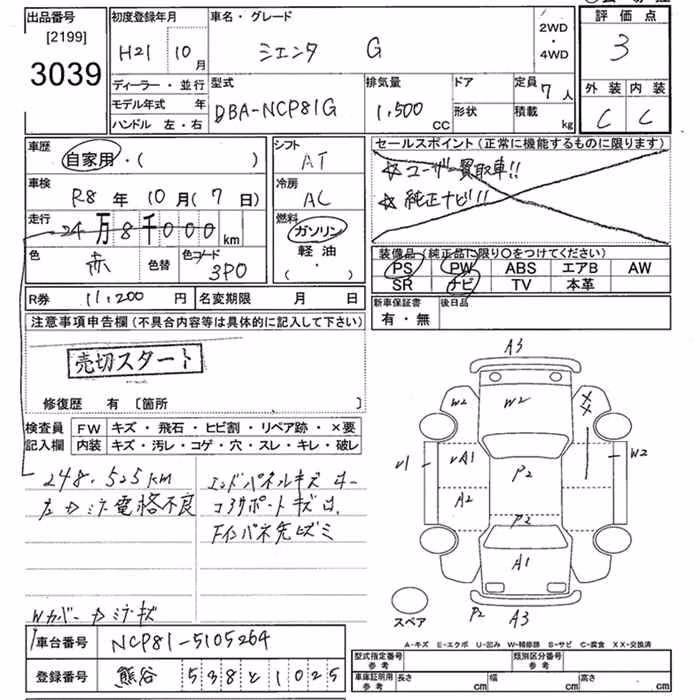 出品番号
[2199]
3039
初度登録年月
H21 10 月
車名・グレード
シエンタ G
2WD
・
4WD
評価点
3
外装 内装
C C
ディーラー・並行
モデル年式 年
ハンドル 左・右
型式
DBA-NCP81G
排気量
1,500 CC
ドア
形状
定員 7 人
積載 kg
車歴
自家用・( )
車検
R8 年 10 月 ( 7 日)
走行
24 万 8 千 000 km
色
赤 色替 色コード 3P0
シフト
AT
冷房
AC
燃料
ガソリン
軽油
( ・ )
セールスポイント(正常に機能するものに限ります)
☆ユーザー買取車!!
☆純正ナビ!!
装備品(純正品に限り○をつけてください)
PS PW ABS エアB AW
SR ナビ TV 本革
R券 11,200 円 名変期限 月 日
新車保証書
有・無
後日品
注意事項申告欄(不具合内容等は具体的に記入して下さい)
売切スタート
修復歴 有 〔箇所
検査員
記入欄
FW キズ・飛石・ヒビ割・リペア跡・×要
内装 キズ・汚レ・コゲ・穴・スレ・キレ・破レ
248,525km
電格不良
エンドパネルキズ
コアサポートキズ
Wカバー
A3
W2 W2
A1 A2 P2 W2
P2
A1
P2 A3
スペア
A-キズ E-エクボ U-凹み W-補修跡 S-サビ C-腐食 XX-交換済
車台番号 NCP81-5105264
登録番号 熊谷 538 と 1025
型式指定番号
参考
類別区分番号
参考
車庫証明用
参考
長さ cm 幅 cm 高さ cm